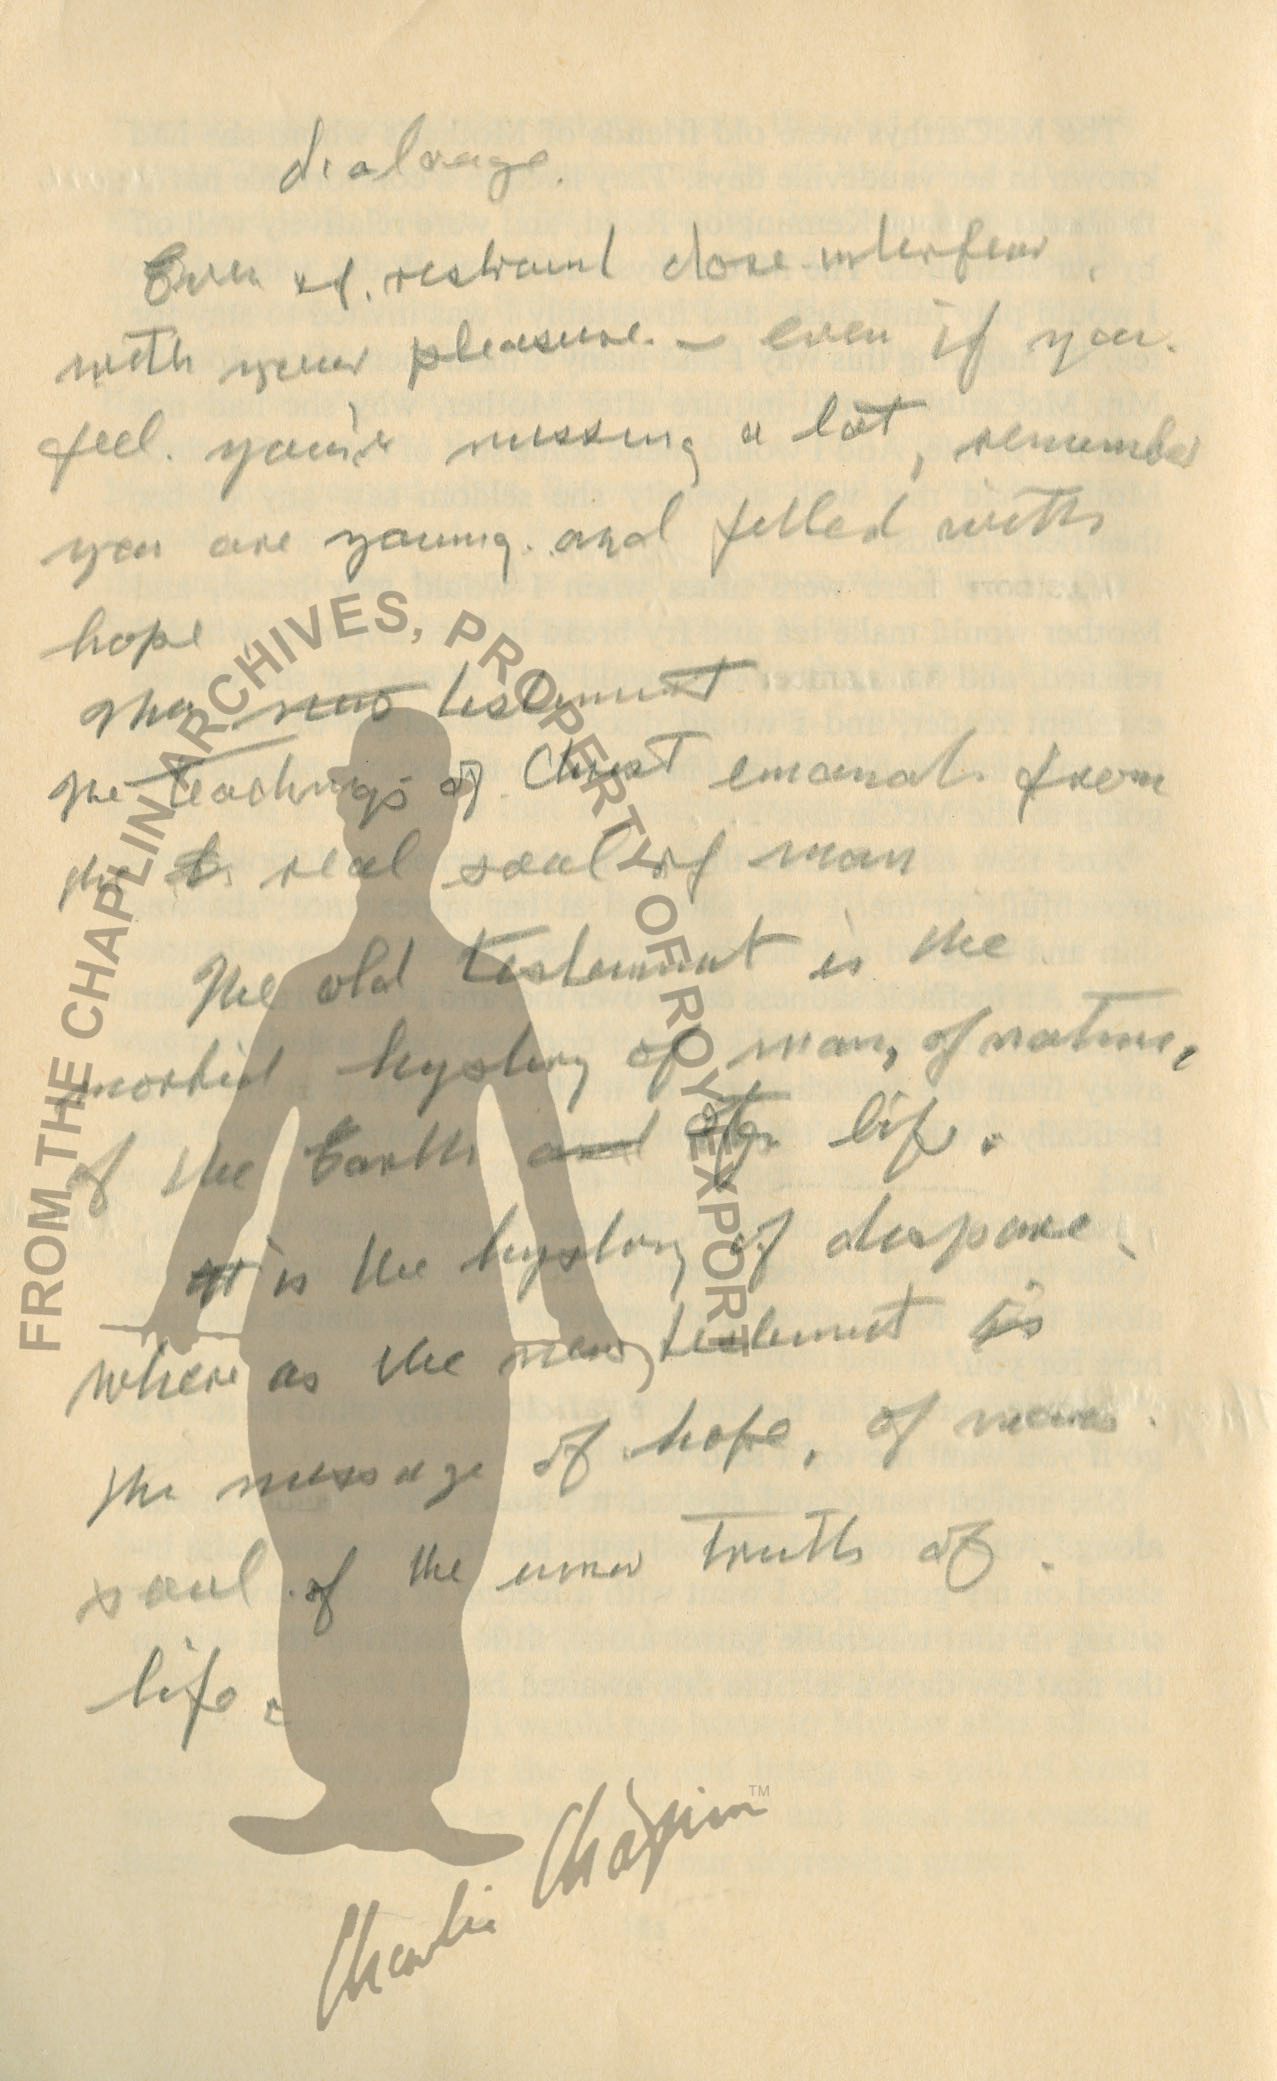 dialouge.
Even if. restraint dose interfear
with your pleasure. — even if you.
feel. you'r missing a lot, remember
you are young. and filled with
hope
The new testement
The teachings of Christ emanate from
the real soul of man
The old testement is the
morbid hystory of man, of nature,
of the Earth and of life.
It is the hystory of dispare
where as the new testement is
the message of hope, of mans
soul of the inner truth of
life.
FROM THE CHAPLIN ARCHIVES, PROPERTY OF ROY EXPORT
Charlie Chaplin™